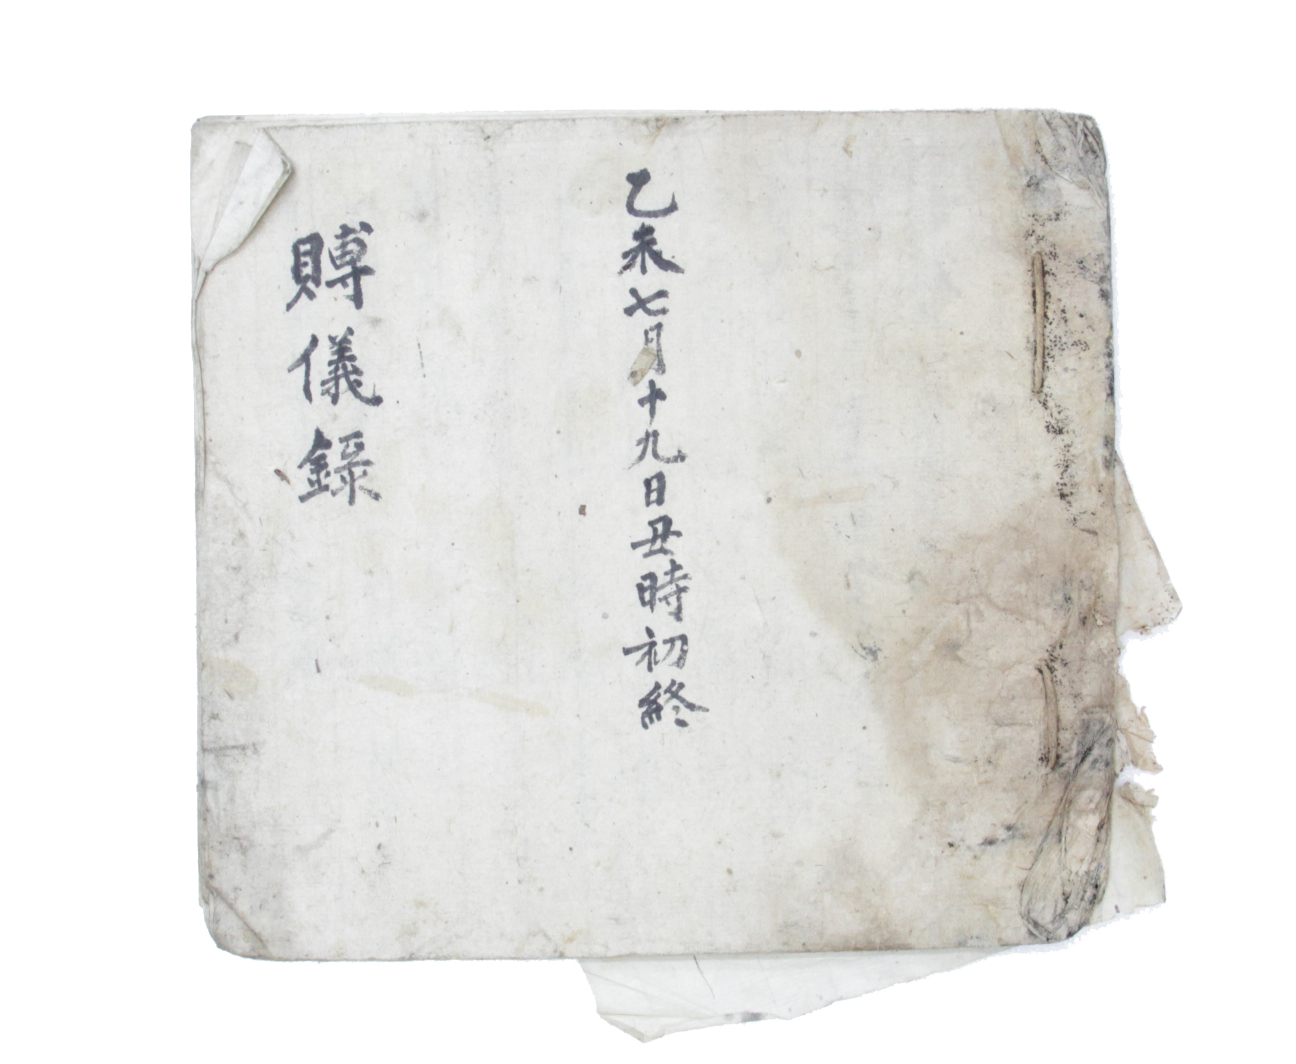 乙未七月十九日丑時初終
賻儀錄